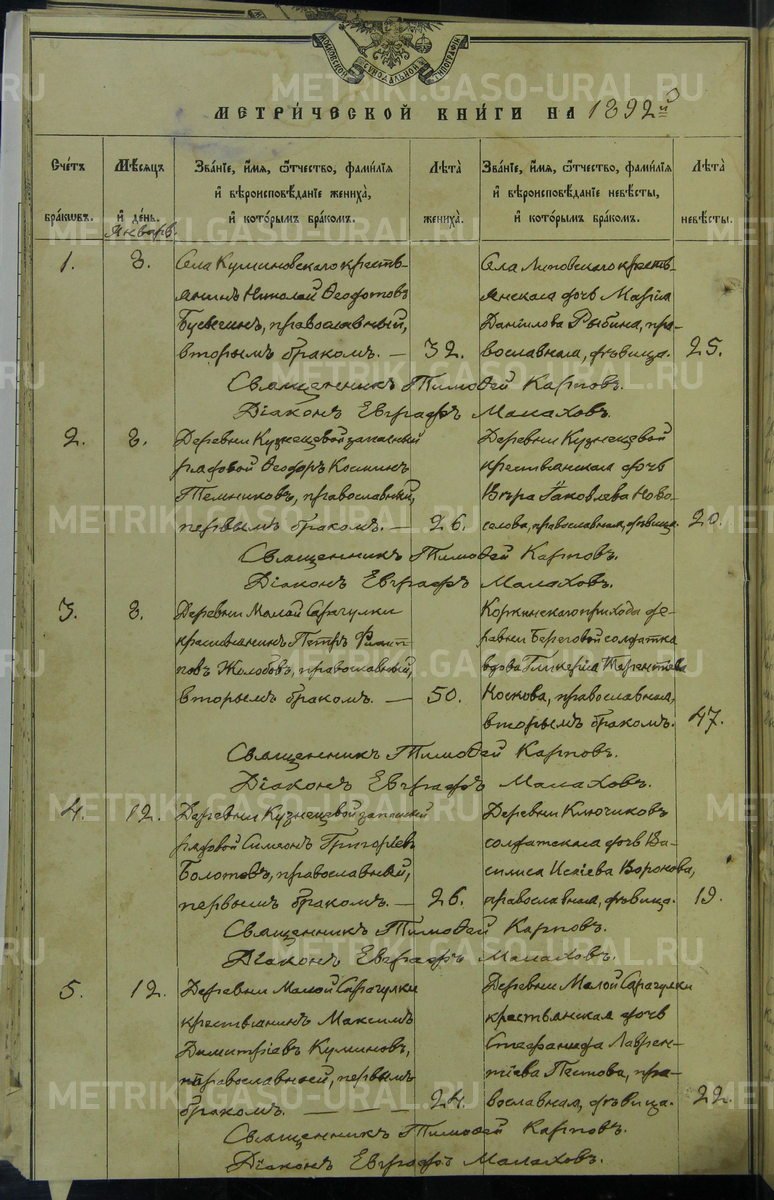 МЕТРИ́ЧЕСКОЙ КНИ́ГИ НА 1892й
Сче́тъ бра́кѡвъ.
Мѣ́сяцъ и́ де́нь.
Зва́нїе, и́мя, ѻ҆́тчество, фами́лїя и҆ вѣроисповѣ́данїе жениха̀, и҆ кото́рымъ бра́комъ.
Лѣ́та жениха̀.
Зва́нїе, и́мя, ѻ҆́тчество, фами́лїя и҆ вѣроисповѣ́данїе невѣ́сты, и҆ кото́рымъ бра́комъ.
Лѣ́та невѣ́сты.
Январь.
1. 8. Села Куминовскаго кресть-
янинъ Николай Ѳеодотовъ
православный,
вторымъ бракомъ. — 32.
Села Липовскаго кресть-
янская дочь Марѳа
Даніилова Рыбина, пра-
вославная, дѣвица. 25.
Священникъ Тимоѳей Карповъ.
Діаконъ Евграфъ Малаховъ.
2. 8. Деревни Кузнецовой запасный
рядовой Ѳеодоръ Косминъ
Темниковъ, православный,
первымъ бракомъ. — 26.
Деревни Кузнецовой
крестьянская дочь
Вѣра Іаковлева Ново-
селова, православная, дѣвица. 20.
Священникъ Тимоѳей Карповъ.
Діаконъ Евграфъ Малаховъ.
3. 8. Деревни Малой Сарагулки
крестьянинъ Петръ Филип-
повъ Жолобовъ, православный,
вторымъ бракомъ. — 50.
Коркинскаго прихода де-
ревни Береговой солдатка
вдова Гликерія Терентьева
Носкова, православная,
вторымъ бракомъ. 47.
Священникъ Тимоѳей Карповъ.
Діаконъ Евграфъ Малаховъ.
4. 12. Деревни Кузнецовой запасный
рядовой Симеонъ Григоріевъ
Болотовъ, православный,
первымъ бракомъ. — 26.
Деревни Ключиковъ
солдатская дочь Ва-
силиса Исаіева Воронова,
православная, дѣвица. 19.
Священникъ Тимоѳей Карповъ.
Діаконъ Евграфъ Малаховъ.
5. 12. Деревни Малой Сарагулки
крестьянинъ Максимъ
Димитріевъ Куминовъ,
православный, первымъ
бракомъ. — — — 24.
Деревни Малой Сарагулки
крестьянская дочь
Стефанида Лаврен-
тіева Пестова, пра-
вославная, дѣвица. 22.
Священникъ Тимоѳей Карповъ.
Діаконъ Евграфъ Малаховъ.
METRIKI.GASO-URAL.RU